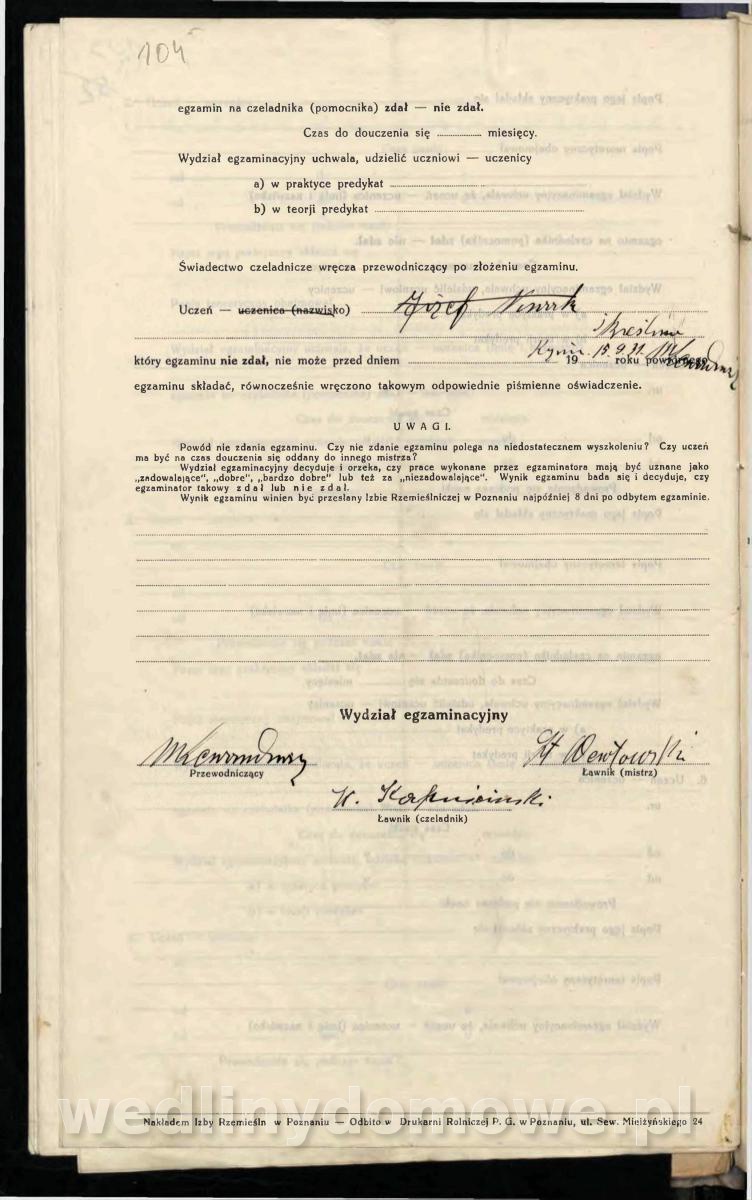 104
egzamin na czeladnika (pomocnika) zdał — nie zdał.
Czas do douczenia się ............ miesięcy.
Wydział egzaminacyjny uchwala, udzielić uczniowi — uczenicy
a) w praktyce predykat
b) w teorji predykat
Świadectwo czeladnicze wręcza przewodniczący po złożeniu egzaminu.
Uczeń — uczenica (nazwisko) Józef
który egzaminu nie zdał, nie może przed dniem 19 roku powtórnego
15.9.31
egzaminu składać, równocześnie wręczono takowym odpowiednie piśmienne oświadczenie.
UWAGI.
Powód nie zdania egzaminu. Czy nie zdanie egzaminu polega na niedostatecznem wyszkoleniu? Czy uczeń
ma być na czas douczenia się oddany do innego mistrza?
Wydział egzaminacyjny decyduje i orzeka, czy prace wykonane przez egzaminatora mają być uznane jako
„zadowalające", „dobre", „bardzo dobre" lub też za „niezadowalające". Wynik egzaminu bada się i decyduje, czy
egzaminator takowy zdał lub nie zdał.
Wynik egzaminu winien być przesłany Izbie Rzemieślniczej w Poznaniu najpóźniej 8 dni po odbytem egzaminie.
Wydział egzaminacyjny
Przewodniczący
Ławnik (mistrz)
Ławnik (czeladnik)
wedlinydomowe.pl
Nakładem Izby Rzemieśln w Poznaniu — Odbito w Drukarni Rolniczej P. G. w Poznaniu, ul. Sew. Mielżyńskiego 24